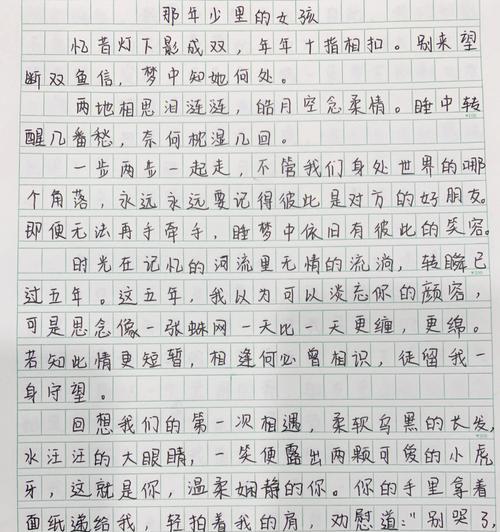 那年少里的女孩
忆昔灯下影成双，年年十指相扣。别来望
断双鱼信，梦中知她何处。
两地相思泪涟涟，皓月空念柔情。睡中转
醒几番愁，奈何枕湿几回。
一步两步一起走，不管我们身处世界的哪
个角落，永远永远要记得彼此是对方的好朋友。
即便无法再手牵手，睡梦中依旧有彼此的笑容。
时光在记忆的河流里无情的流淌，转瞬已
过五年。这五年，我以为可以淡忘你的颜容，
可是思念像一张蛛网一天比一天更缠，更绵。
若知此情更短暂，相逢何必曾相识，徒留我一
身守望。
回想我们的第一次相遇，柔软乌黑的长发，
水汪汪的大眼睛，一笑便露出两颗可爱的小虎
牙，这就是你，温柔娴静的你。你的手里拿着
面纸递给我，轻拍着我的肩，劝慰道："别哭了